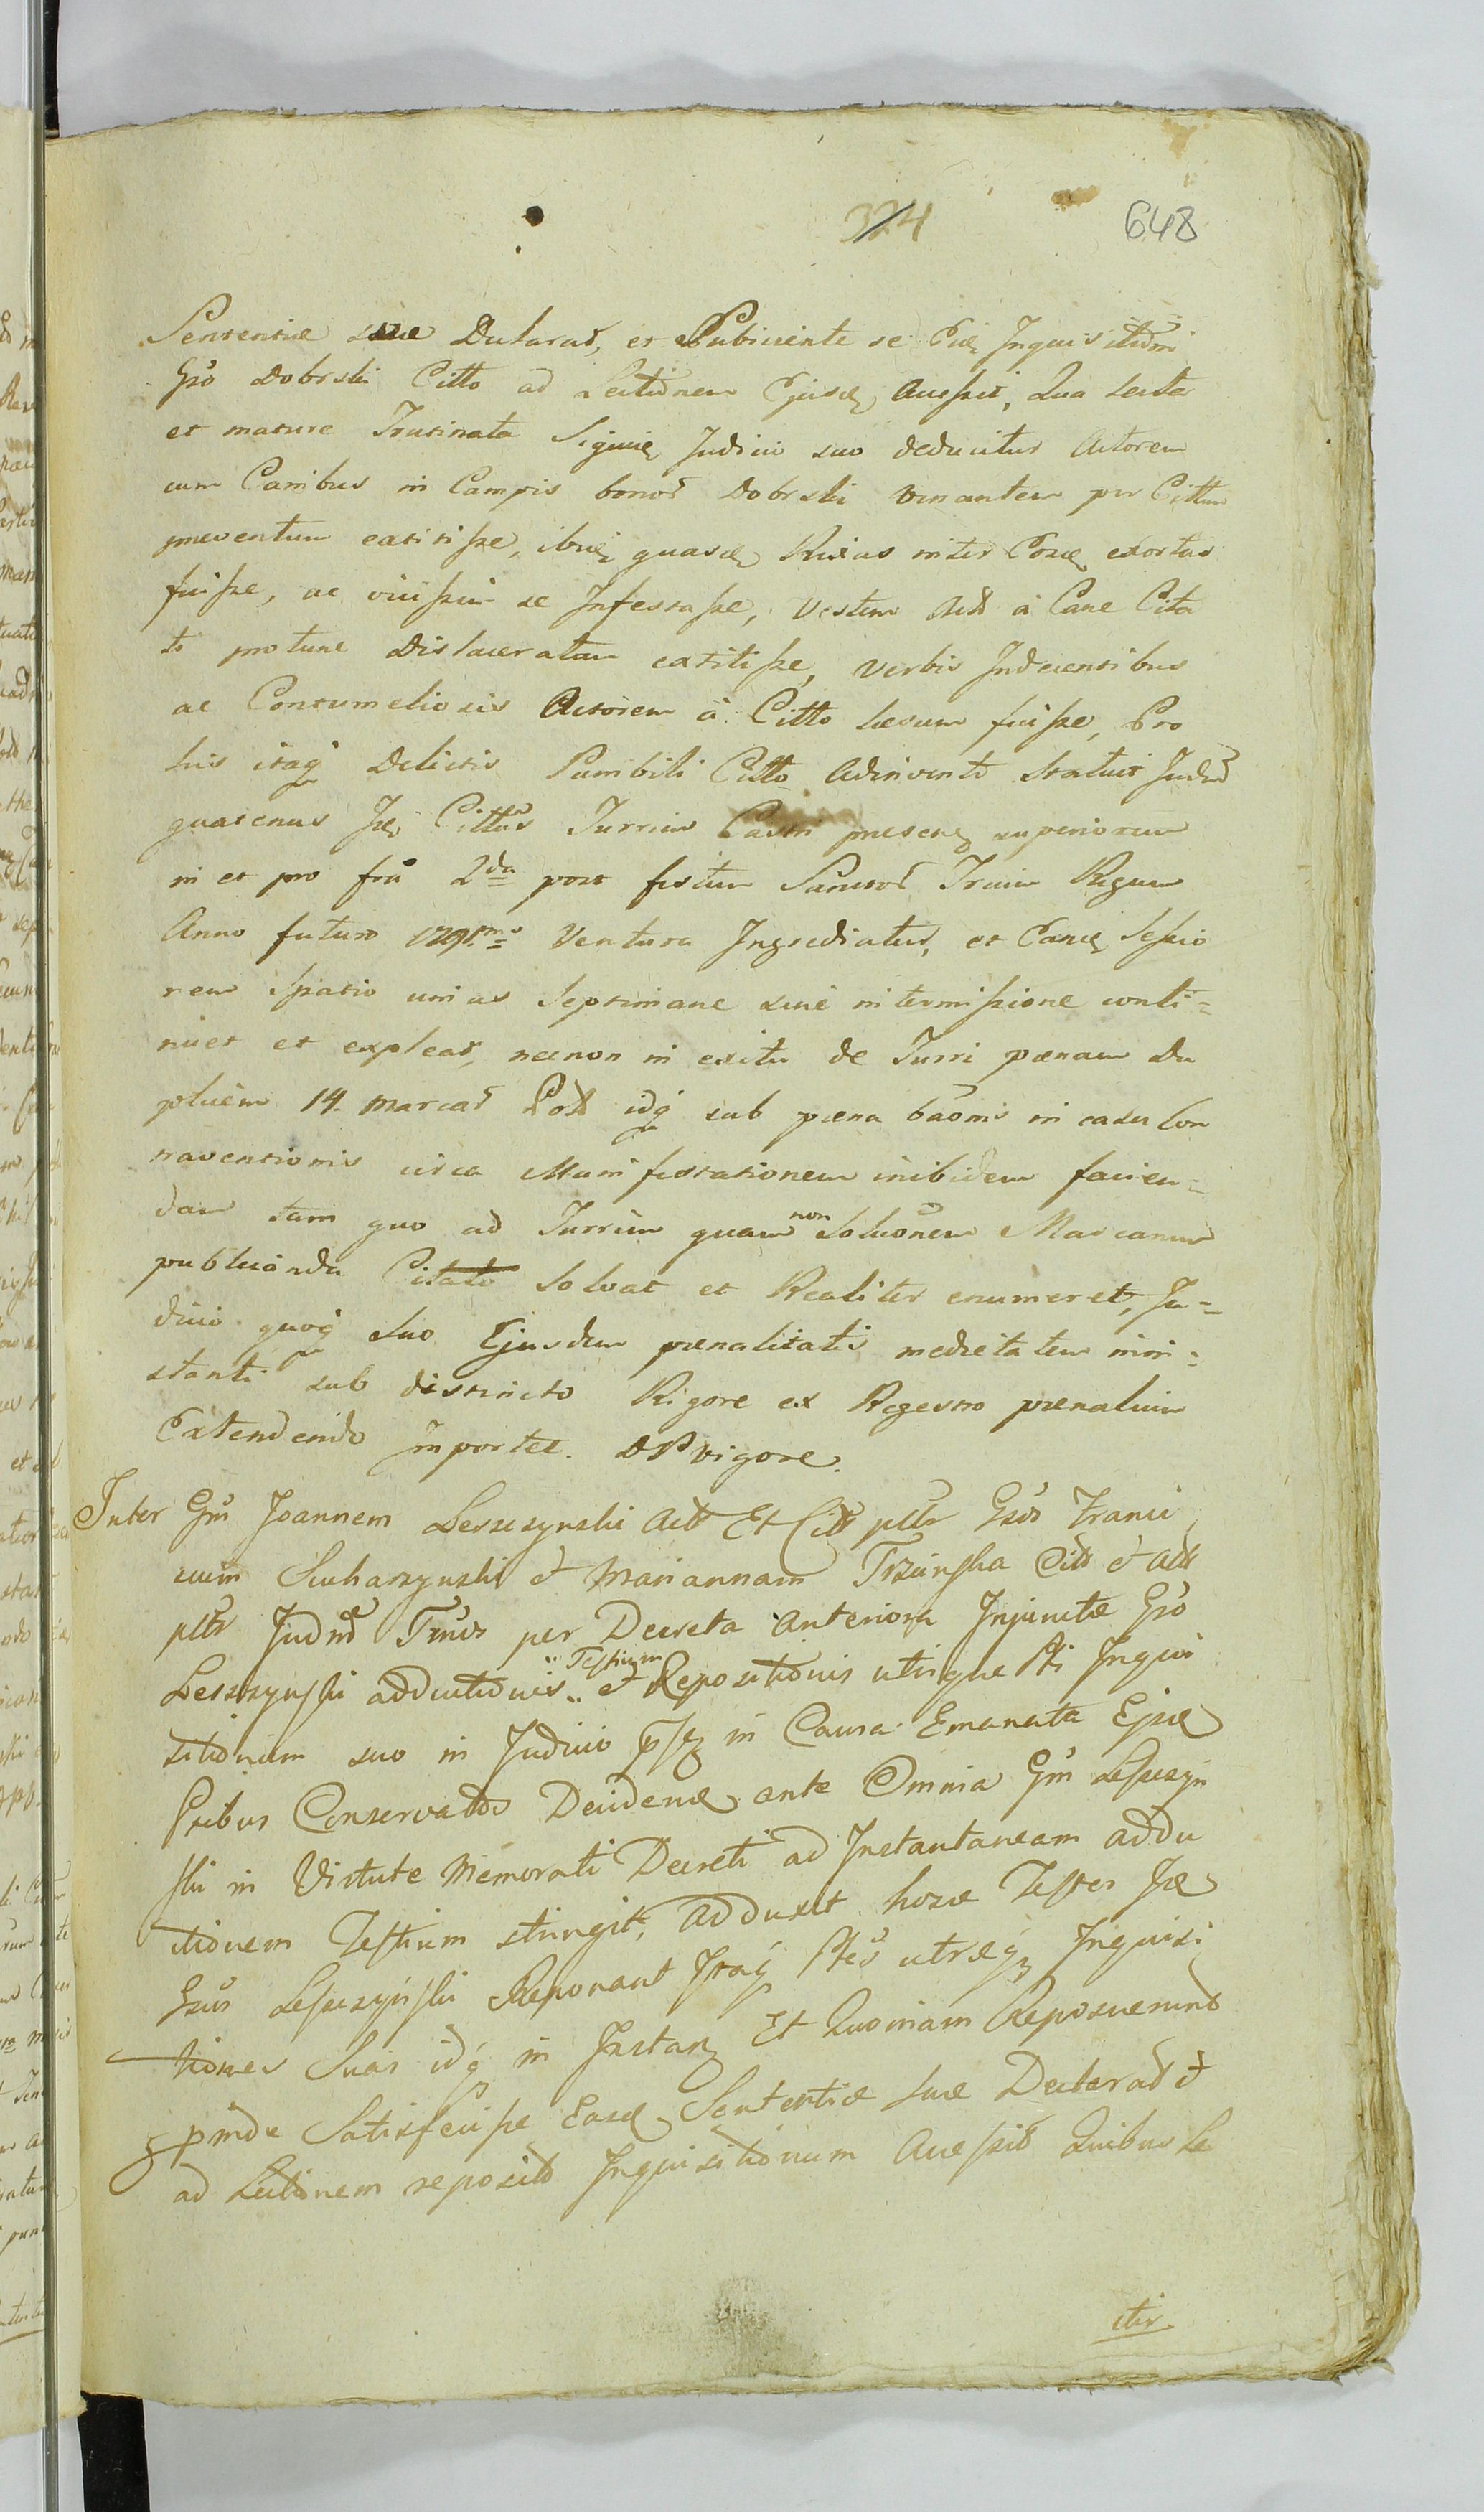 324 648
Sententiæ suæ Declarat, et Subiiciente se Inquisitioni
Gso Dobrski Citto ad Lectionem Ejusd Accessit, Qua Lecta
et mature Trutinata Judicio suo deducitur Actorem
cum Canibus in Campis bonor Dobrski venantem per Cittum
preventum extitisse, ibiq quasd Rixas inter Eosd exortas
fuisse, ac vicissim se Infestasse, Vestem Act à Cane Cita
to pro tunc Dislaceratam extitisse, verbis Indecentibus
ac Contumeliosis Actorem à Citto læsum fuisse, Pro
his itaq Delictis Punibili Citto Adinvento Statuit Judm
quatenus Cittus Turrim Castri presen superiorem
in et pro fria 2da post festum Sanctor Trium Regum
Anno futuro 1791mo Ventura Ingrediatur, et Eand Sessio
nem Spatio unius Septimanæ sine intermissione conti=
nuet et expleat, necnon in exitu de Turri pænam Du
plicem 14. Marcar Pol idq sub pæna banis in casu Con
traventionis circa Manifestationem inibidem facien=
dam tam quo ad Turrim quam non Soluonem Marcarum
publicanda Citato Solvat et Realiter enumeret, Ju=
dicio quoq Suo Ejusdem pænalitatis medietatem inin=
stanti sub districto Rigore ex Regestro pænalium
Extendendo Importet. DP vigore.
Inter Gm Joannem Leszczynski Act Et Citt ptto Gsos Franci
scum Sucharzynski et Mariannam Citt et Act
ptto Judm per Decreta Anteriora Injunctæ Gso
Leszczynski adductionis " Testium " et Repositionis utrique Pti Inqui
sitionum suo in Judicio in Causa Emanata Ejusd
Ptibus Conservatos Decidend ante Omnia Gm Leszczyn
ski in Virtute Memorati Decreti ad Instantaneam addu
ctionem Testium stringit, Adduxit hosce Testes
Gsus Leszczynski Reponant Itaq Ptes utræq Inquisi
tiones Suas idq in Instan Et Quoniam Reposuerunt
proinde Satisfecisse Easd Sententiæ Suæ Declarat et
ad Lectionem reposit Inquisitionum Accessit Quibus Le
ctis